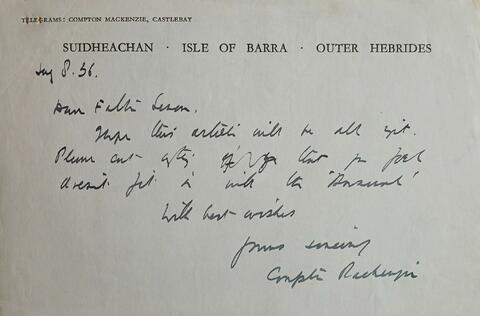 TELEGRAMS: COMPTON MACKENZIE, CASTLEBAY
SUIDHEACHAN · ISLE OF BARRA · OUTER HEBRIDES
8. 36.
Dear Father
Hope this article will be all right.
Please cut that you feel
doesn't fit in with the
With best wishes
Yours sincerely
Compton Mackenzie